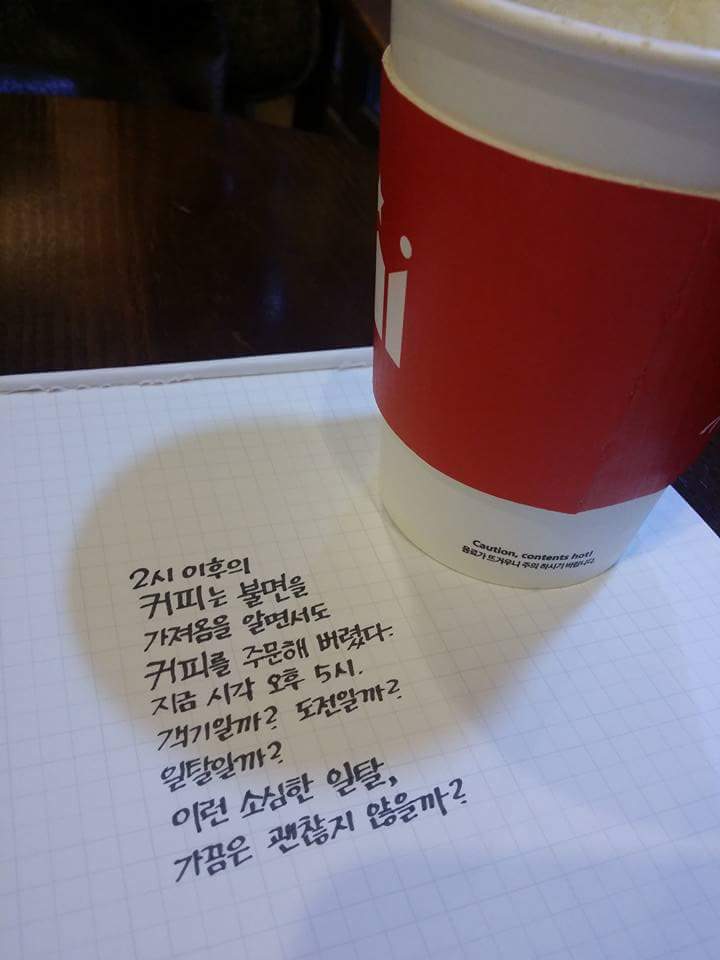 Caution, contents hot!
음료가 뜨거우니 주의 하시기 바랍니다.
2시 이후의
커피는 불면을
가져옴을 알면서도
커피를 주문해 버렸다.
지금 시각 오후 5시.
객기일까? 도전일까?
일탈일까?
이런 소심한 일탈,
가끔은 괜찮지 않을까?